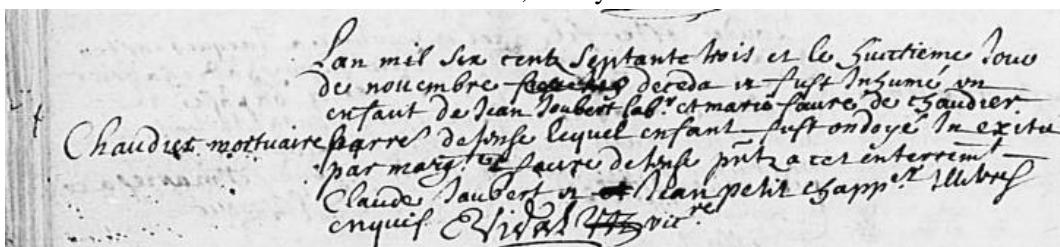 Lan mil six centz septante trois et le huictieme Jour
de novembre deceda et fust Inhumé un
enfant de Jean Joubert labr et marie faure de chaudier
Chaudier mortuaire
parr de lequel enfant fust ondoyé In exitu
par marg.te faure de pntz a cet enterremt
Claude Jaubert et Jean petit chappr Illitres
enquis EVidal vicre